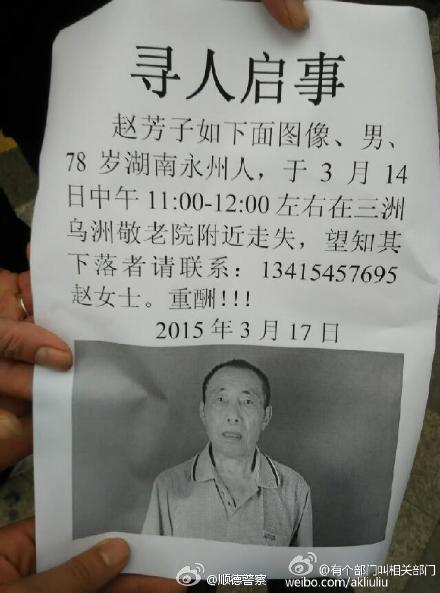 寻人启事
赵芳子如下面图像、男、
78 岁湖南永州人，于 3 月 14
日中午 11:00-12:00 左右在三洲
乌洲敬老院附近走失，望知其
下落者请联系：13415457695
赵女士。重酬!!!
2015 年 3 月 17 日
@顺德警察
@有个部门叫相关部门
weibo.com/akliuliu